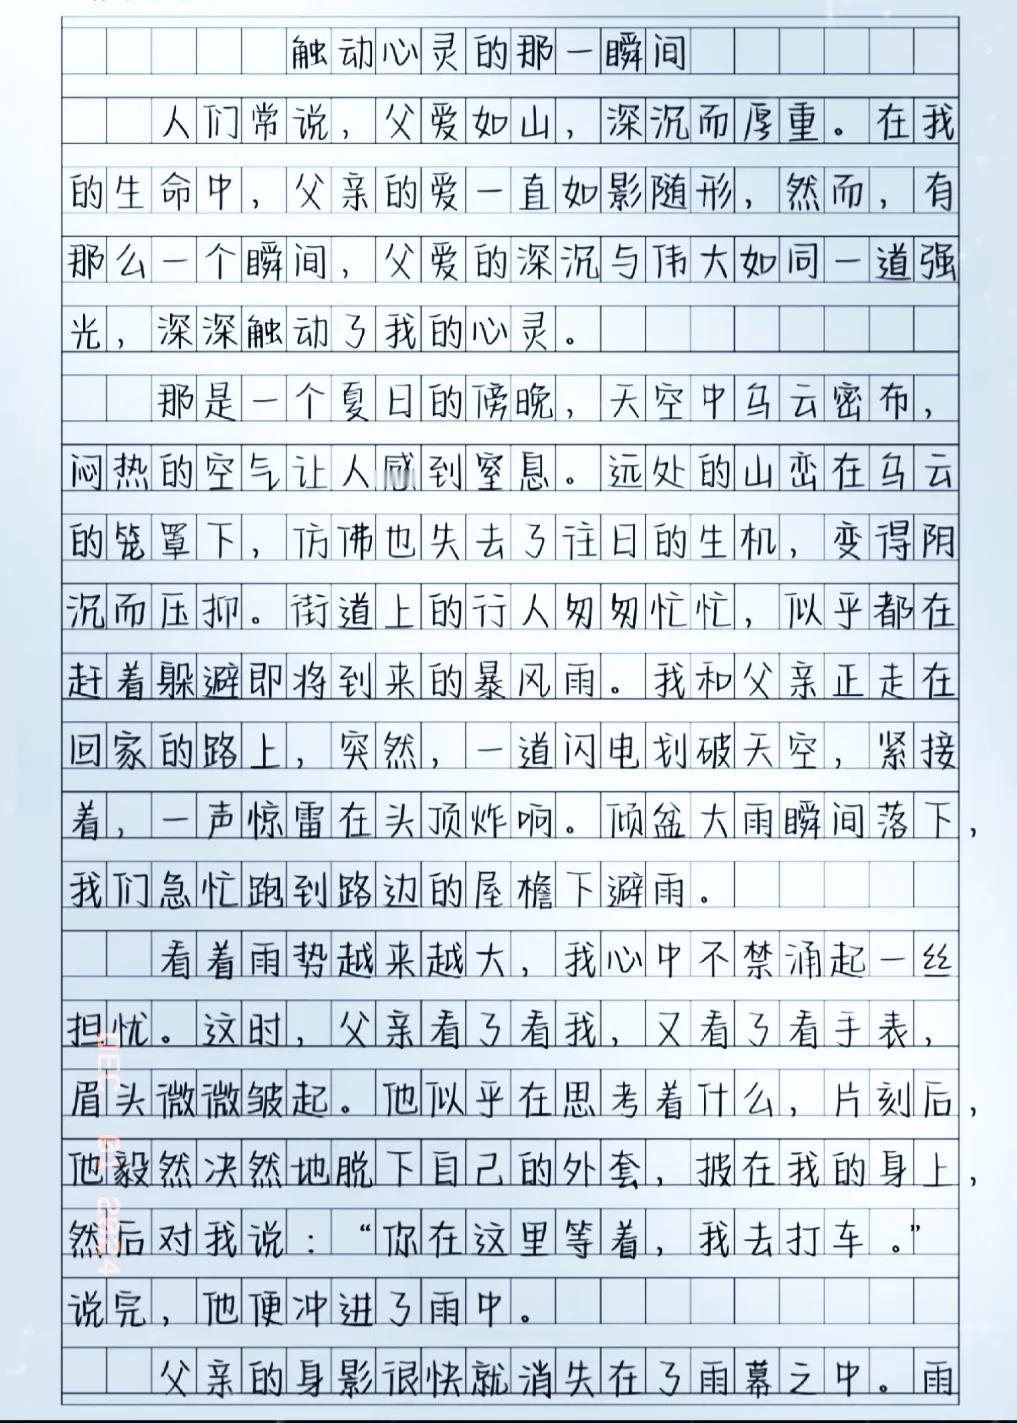 触动心灵的那一瞬间
人们常说，父爱如山，深沉而厚重。在我
的生命中，父亲的爱一直如影随形，然而，有
那么一个瞬间，父爱的深沉与伟大如同一道强
光，深深触动了我的心灵。
那是一个夏日的傍晚，天空中乌云密布，
闷热的空气让人感到窒息。远处的山峦在乌云
的笼罩下，仿佛也失去了往日的生机，变得阴
沉而压抑。街道上的行人匆匆忙忙，似乎都在
赶着躲避即将到来的暴风雨。我和父亲正走在
回家的路上，突然，一道闪电划破天空，紧接
着，一声惊雷在头顶炸响。倾盆大雨瞬间落下，
我们急忙跑到路边的屋檐下避雨。
看着雨势越来越大，我心中不禁涌起一丝
担忧。这时，父亲看了看我，又看了看手表，
眉头微微皱起。他似乎在思考着什么，片刻后，
他毅然决然地脱下自己的外套，披在我的身上，
然后对我说：“你在这里等着，我去打车。”
说完，他便冲进了雨中。
父亲的身影很快就消失在了雨幕之中。雨
DEC. 01 2024